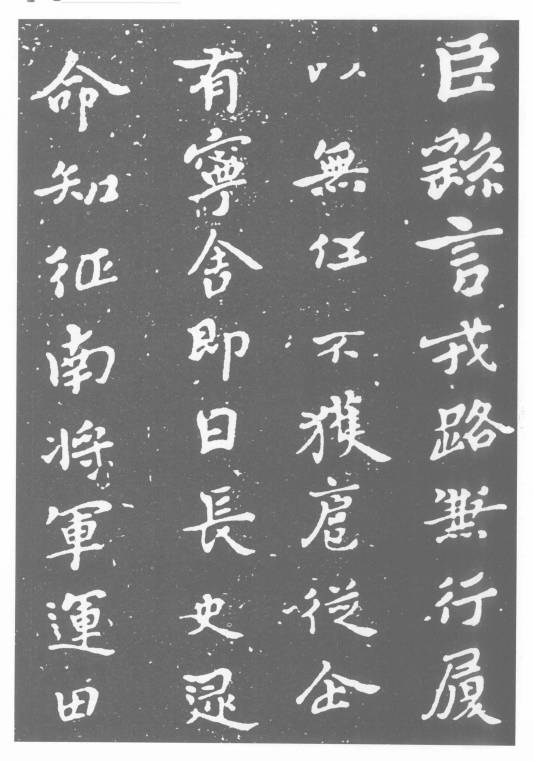 臣繇言戎路兼行履
以無任不獲扈從企
有寧舍即日長史逯
命知征南將軍運田